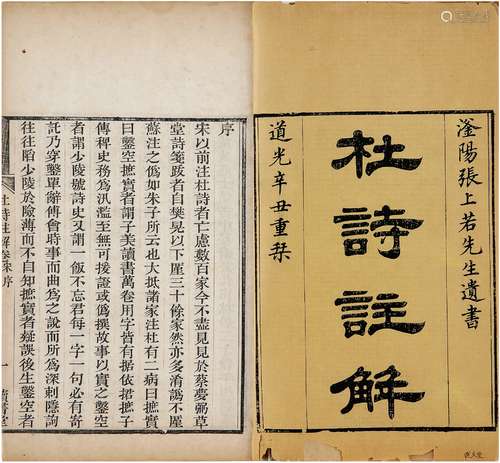 滏陽張上若先生遺書
杜詩註解
道光辛丑重栞
序
宋以前注杜詩者亡慮數百家今不盡見見於蔡夢弼草
堂詩箋跋者自樊晃以下厪三十餘家然亦多淆譌不厪
蘇注之僞如朱子所云也大抵諸家注杜有二病曰摭實
曰鑿空摭實者謂子美讀書萬卷用字皆有据依捃摭子
傳稗史務爲汎濫至無可援證或僞撰故事以實之鑿空
者謂少陵號詩史又謂一飯不忘君每一字一句必有寄
託乃穿鑿單辭傅會時事而曲爲之說而所爲深刺隱詢
往往陷少陵於險薄而不自知摭實者疑誤後生鑿空者
杜詩註解卷朱序
一